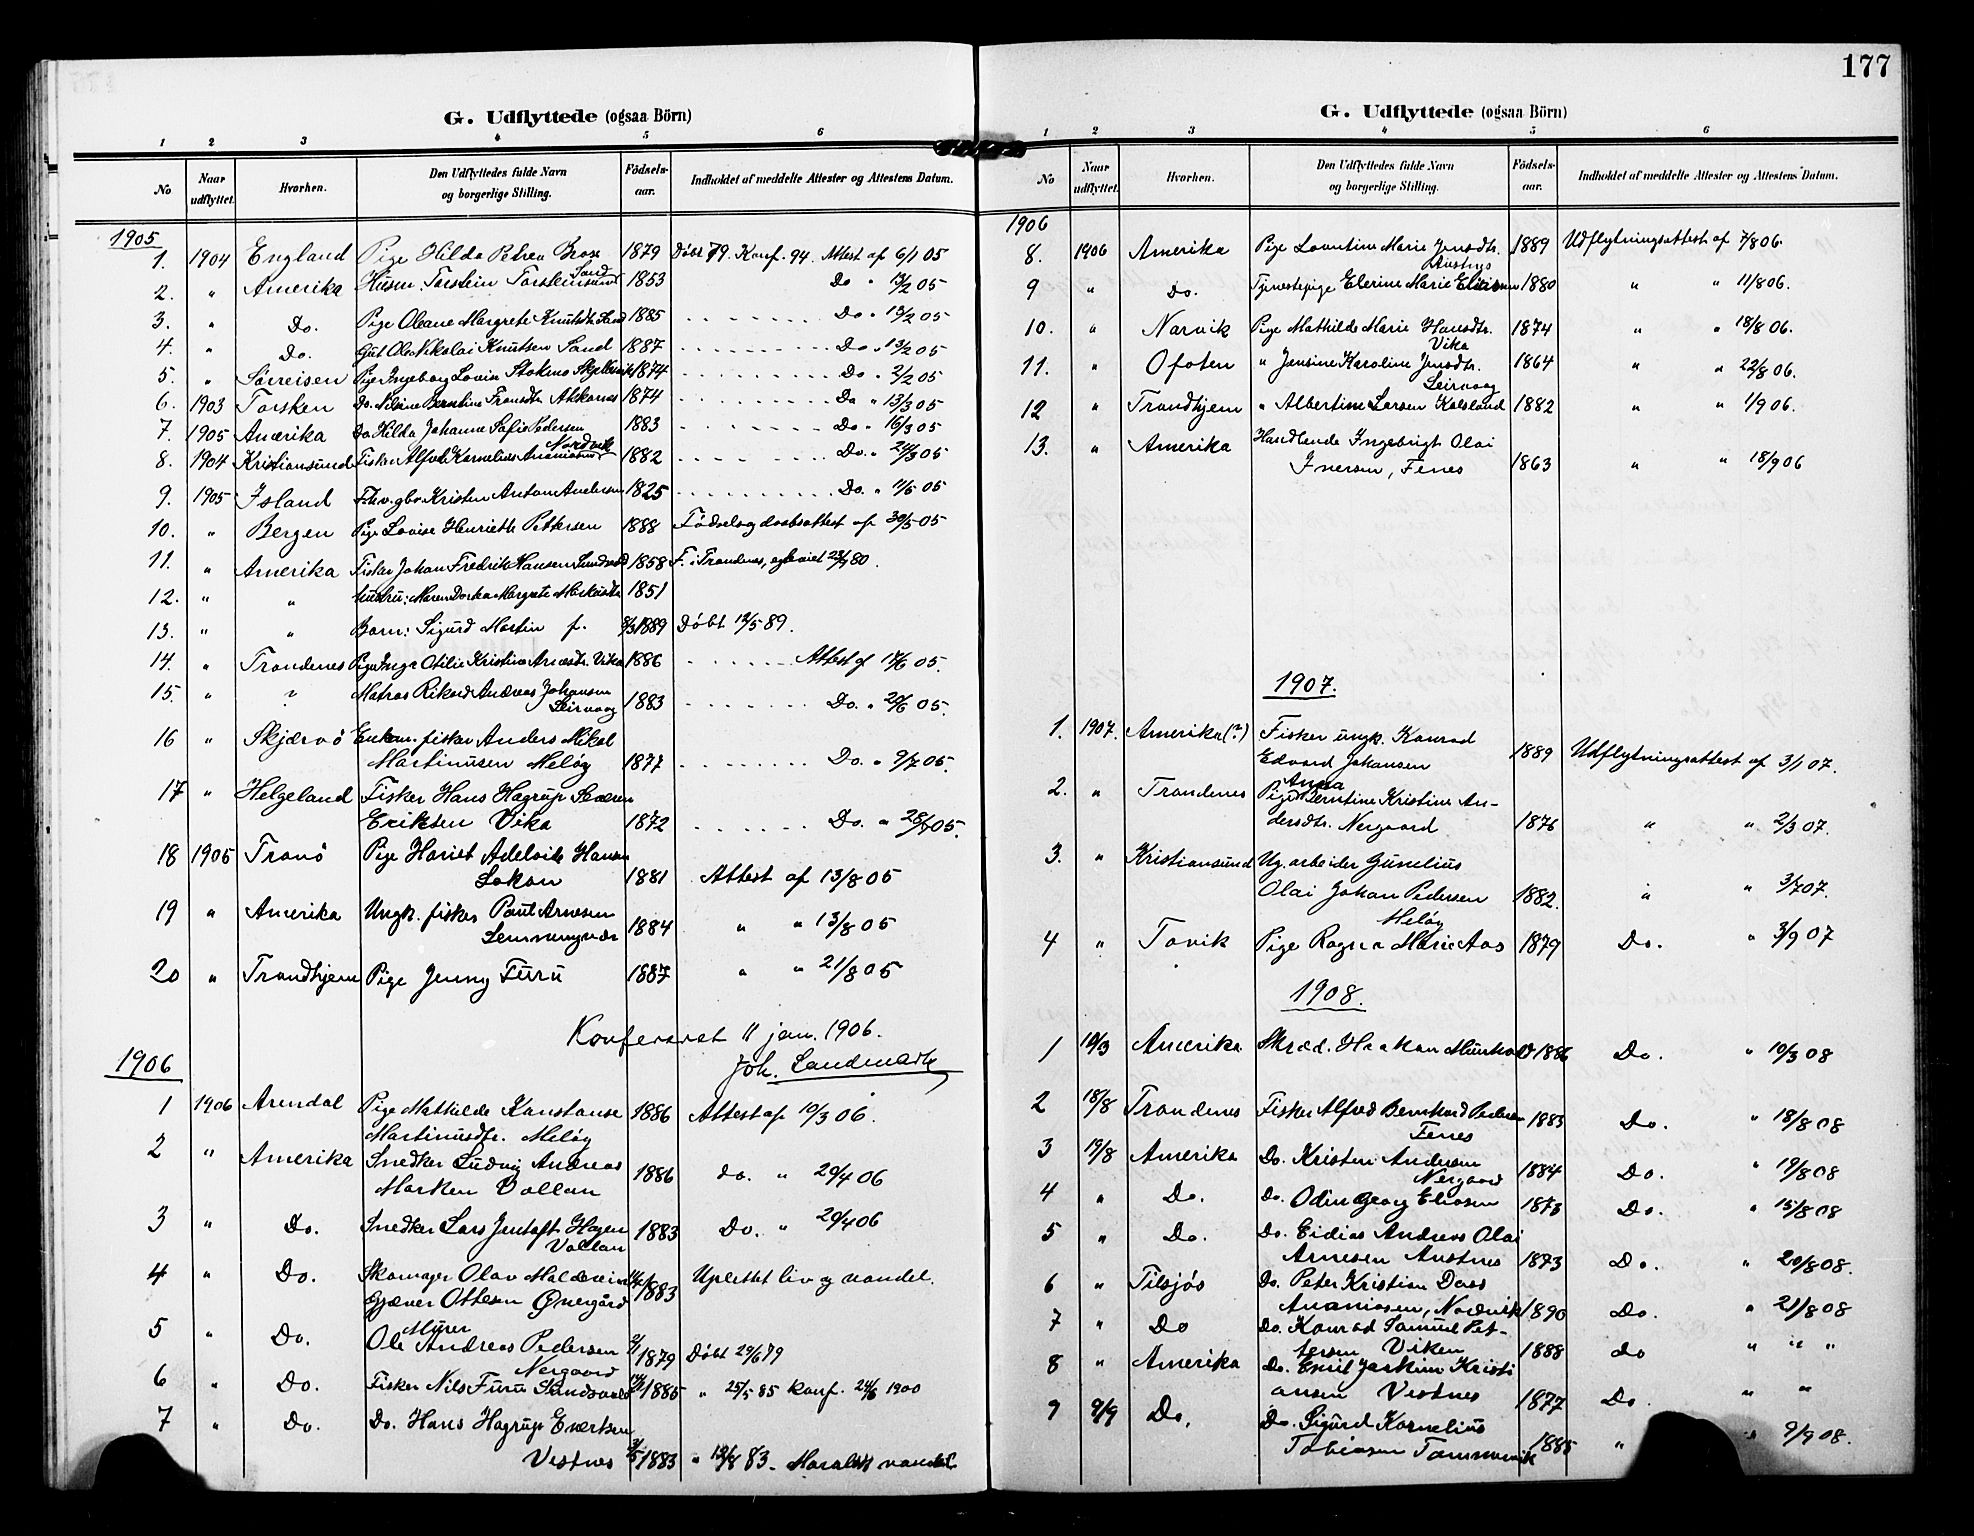 G. Udflyttede (ogsaa Börn)
1 2 3 4 5 6
No Naar udflyttet. Hvorhen. Den Udflyttedes fulde Navn og borgerlige Stilling. Födsels-aar. Indholdet af meddelte Attester og Attestens Datum.
1905
1. 1904 England Pige Hilda Petrea 1879 Döbt 79. Konf. 94. Attest af 6/1 05
Sand
2. " Amerika Husm. Torstein Torsteinsen 1853 Do " 13/2 05
3. " Do. Pige Oleane Margrete Knutsdtr. Sand 1885 Do " 13/2 05
4. " Do. Gut Ole Nikolai Knutsen Sand 1887 Do " 13/2 05
5. " Sørreisen Pige Ingeborg Lovise 1874 Do. " 2/2 05
6. 1903 Torsken Do. Nilsine Berntine Fransdtr. 1874 Do " 13/3 05
7. 1905 Amerika Do Hilda Johanna Sofie Pedersen 1883 Do " 16/3 05
Nordvik
8. 1904 Kristiansund Fisker Alfred Kornelius Ananiassen 1882 Do. " 24/3 05
9. 1905 Island Kristen Antom Andersen 1825 Do. " 11/5 05
10. " Bergen Pige Lovise Henriette Pettersen 1888 Födsel og daabsattest af 30/5 05
11. " Amerika Fisker Johan Fredrik Hansen 1858 F. i Trondenes, 80.
12. " " Hustru: Maren Dorthea Margrete 1851
13. " " Barn: Sigurd Martin f. 8/3 1889 Döbt 12/5 89.
14. " Trondenes Pige Inga Otilie Kristine Arnesdtr. Vika 1886 Attest af 17/6 05.
15. " " Matros Rikard Andreas Johansen
Leirvaag 1883 Do. " 20/6 05.
16 " Skjærvö Enkem. fisker Anders Mikal
Martinusen Meløy 1877 Do. " 9/7 05.
17 " Helgeland Fisker Hans Hagrup Severin
Eriksen Vika 1872 Do. " 28/7 05.
18 1905 Tranö Pige Hariet Adelvide Hansen
Lekan 1881 Attest af 13/8 05
19 " Amerika Ungk. fisker Paul Arnesen
Lemmingvær 1884 " " 13/8 05
20 " Trondhjem Pige Jenny Furu 1887 " " 21/8 05
Konfereret 11 jan. 1906.
Joh. Landmark
1906
1 1906 Arendal Pige Mathilde Konstanse 1886 Attest af 10/3 06.
Martinusdtr. Meløy
2 " Amerika Snedker Ludvig Andreas
Morken Vollan 1886 do. " 29/4 06
3 " Do. Snedker Lars Jentoft Hagen
Vollan 1883 Do. " 29/4 06
4 " Do. Skomager Olav Maldevin
Gjæver Ottesen Øvergård 1883 Uplettet liv og vandel.
5 " Do. Murer
Ole Andreas Pedersen
Nergaard 1879 Döbt 29/6 79
6 " Do. Fisker Nils Furu Sandvold 1885 " 25/5 85 Konf. 24/6 1900
7 " Do. Do. Hans Hagrup Evertsen
Vestnes 1883 " 12/8 83. vandel
177
G. Udflyttede (ogsaa Börn)
1 2 3 4 5 6
No Naar udflyttet. Hvorhen. Den Udflyttedes fulde Navn og borgerlige Stilling. Födsels-aar. Indholdet af meddelte Attester og Attestens Datum.
1906
8. 1906 Amerika Pige Lovntine Marie Jensdtr. 1889 Udflytningsattest af 7/8 06.
Austnes
9 " Do. Tjenestepige Elerine Marie Eliassen 1880 " " 11/8 06.
10. " Narvik Pige Mathilde Marie Hansdtr. 1874 " " 18/8 06.
Vika
11. " Ofoten " Jensine Karoline Jensdtr. 1864 " " 22/8 06.
Leirvaag
12 " Trondhjem " Albertine Larsen Kalsland 1882 " " 1/9 06.
13. " Amerika Handlende Ingebrigt Olai
Iversen, Fenes 1863 " " 18/9 06
1907.
1. 1907. Amerika (?) Fisker ungk. Konrad
Edvard Johansen 1889 Udflytningsattest af 3/1 07.
2. " Trondenes Anna
Pige Berntine Kristine An-
dersdtr. Nergaard 1876 " " 2/3 07.
3. " Kristiansund Ug. arbeider Gunelius
Olai Johan Pedersen 1882. " " 3/7 07.
Meløy
4 " Tovik Pige Ragna Marie Aas 1879 Do. " 3/9 07
1908.
1 10/3 Amerika Skræd. Haakon 1886 Do. " 10/3 08
2 18/8 Trondenes Fisker Alfred Bernhard Pedersen
Fenes 1883 Do. " 18/8 08
3 19/8 Amerika Do. Kristen Andersen
Nergaard 1884 Do. " 19/8 08
4 " Do. Do. Odin Georg Eliasen 1873 Do. " 15/8 08
5 " Do. Do. Eidias Andreas Olai
Arnesen Austnes 1873 Do. " 20/8 08.
6 " Tilsjös Do. Peter Kristian Dass
Ananiassen, Nordvik 1890 Do. " 21/8 08
7 " Do Do. Konrad Samuel Pet-
tersen Viken 1888 do " " "
8 " Amerika Do. Emil Joakim Kristi
ansen Vestnes 1877 Do. " "
9 9/9 Do. Do. Sigurd Kornelius
Tobiasen Tommervik 1885 " " 9/9 08.